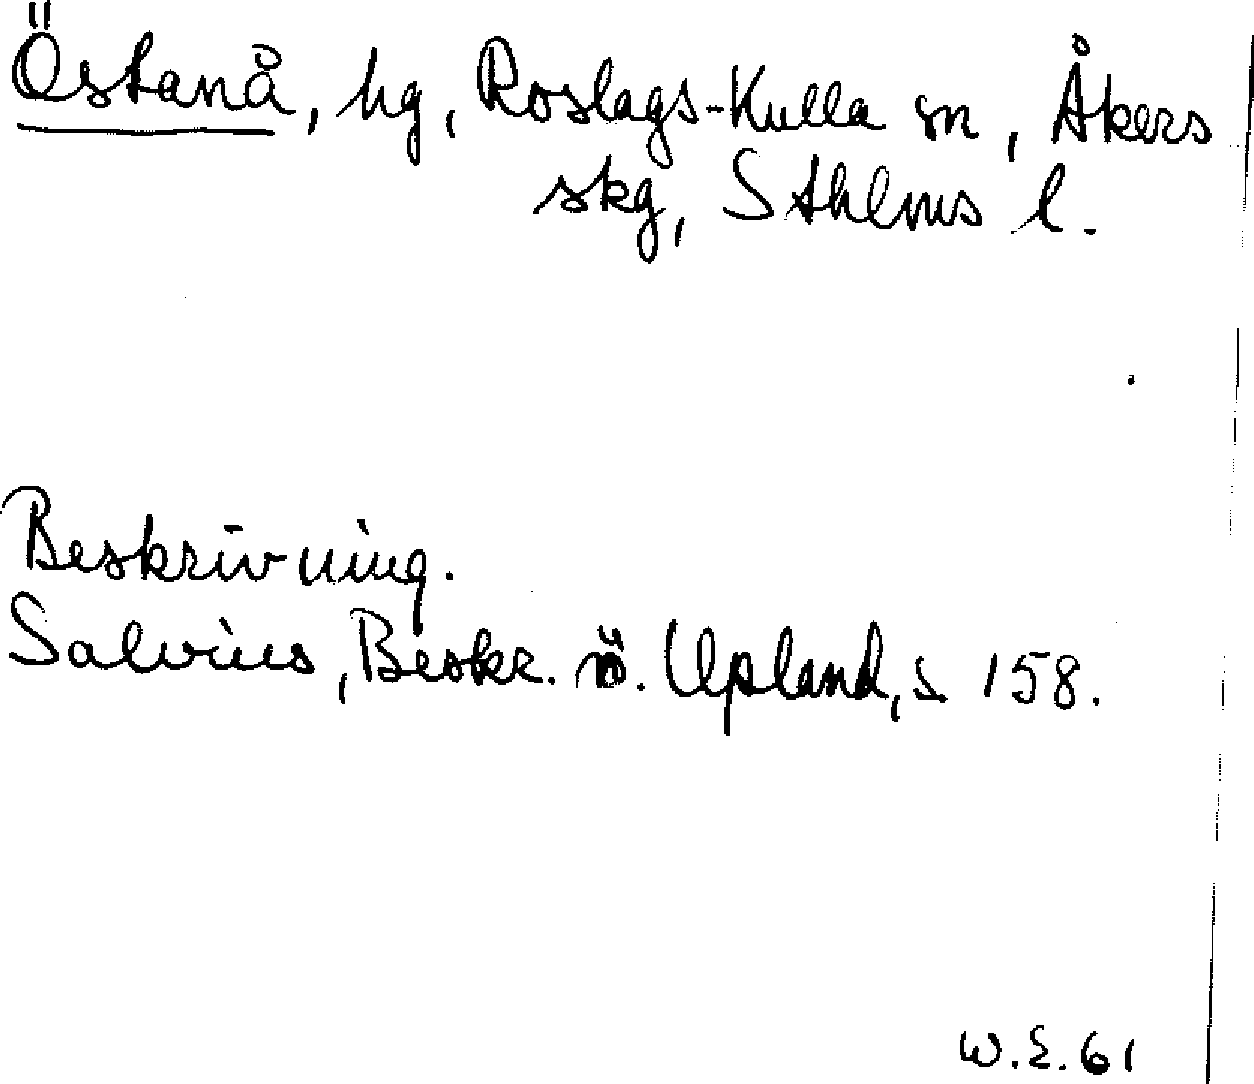 Östanå, hg, Roslags-Kulla sn, Åkers
skg, Sthlms l.
Beskrivning.
Salvius, Beskr. ö. Upland, s 158.
W.E.61